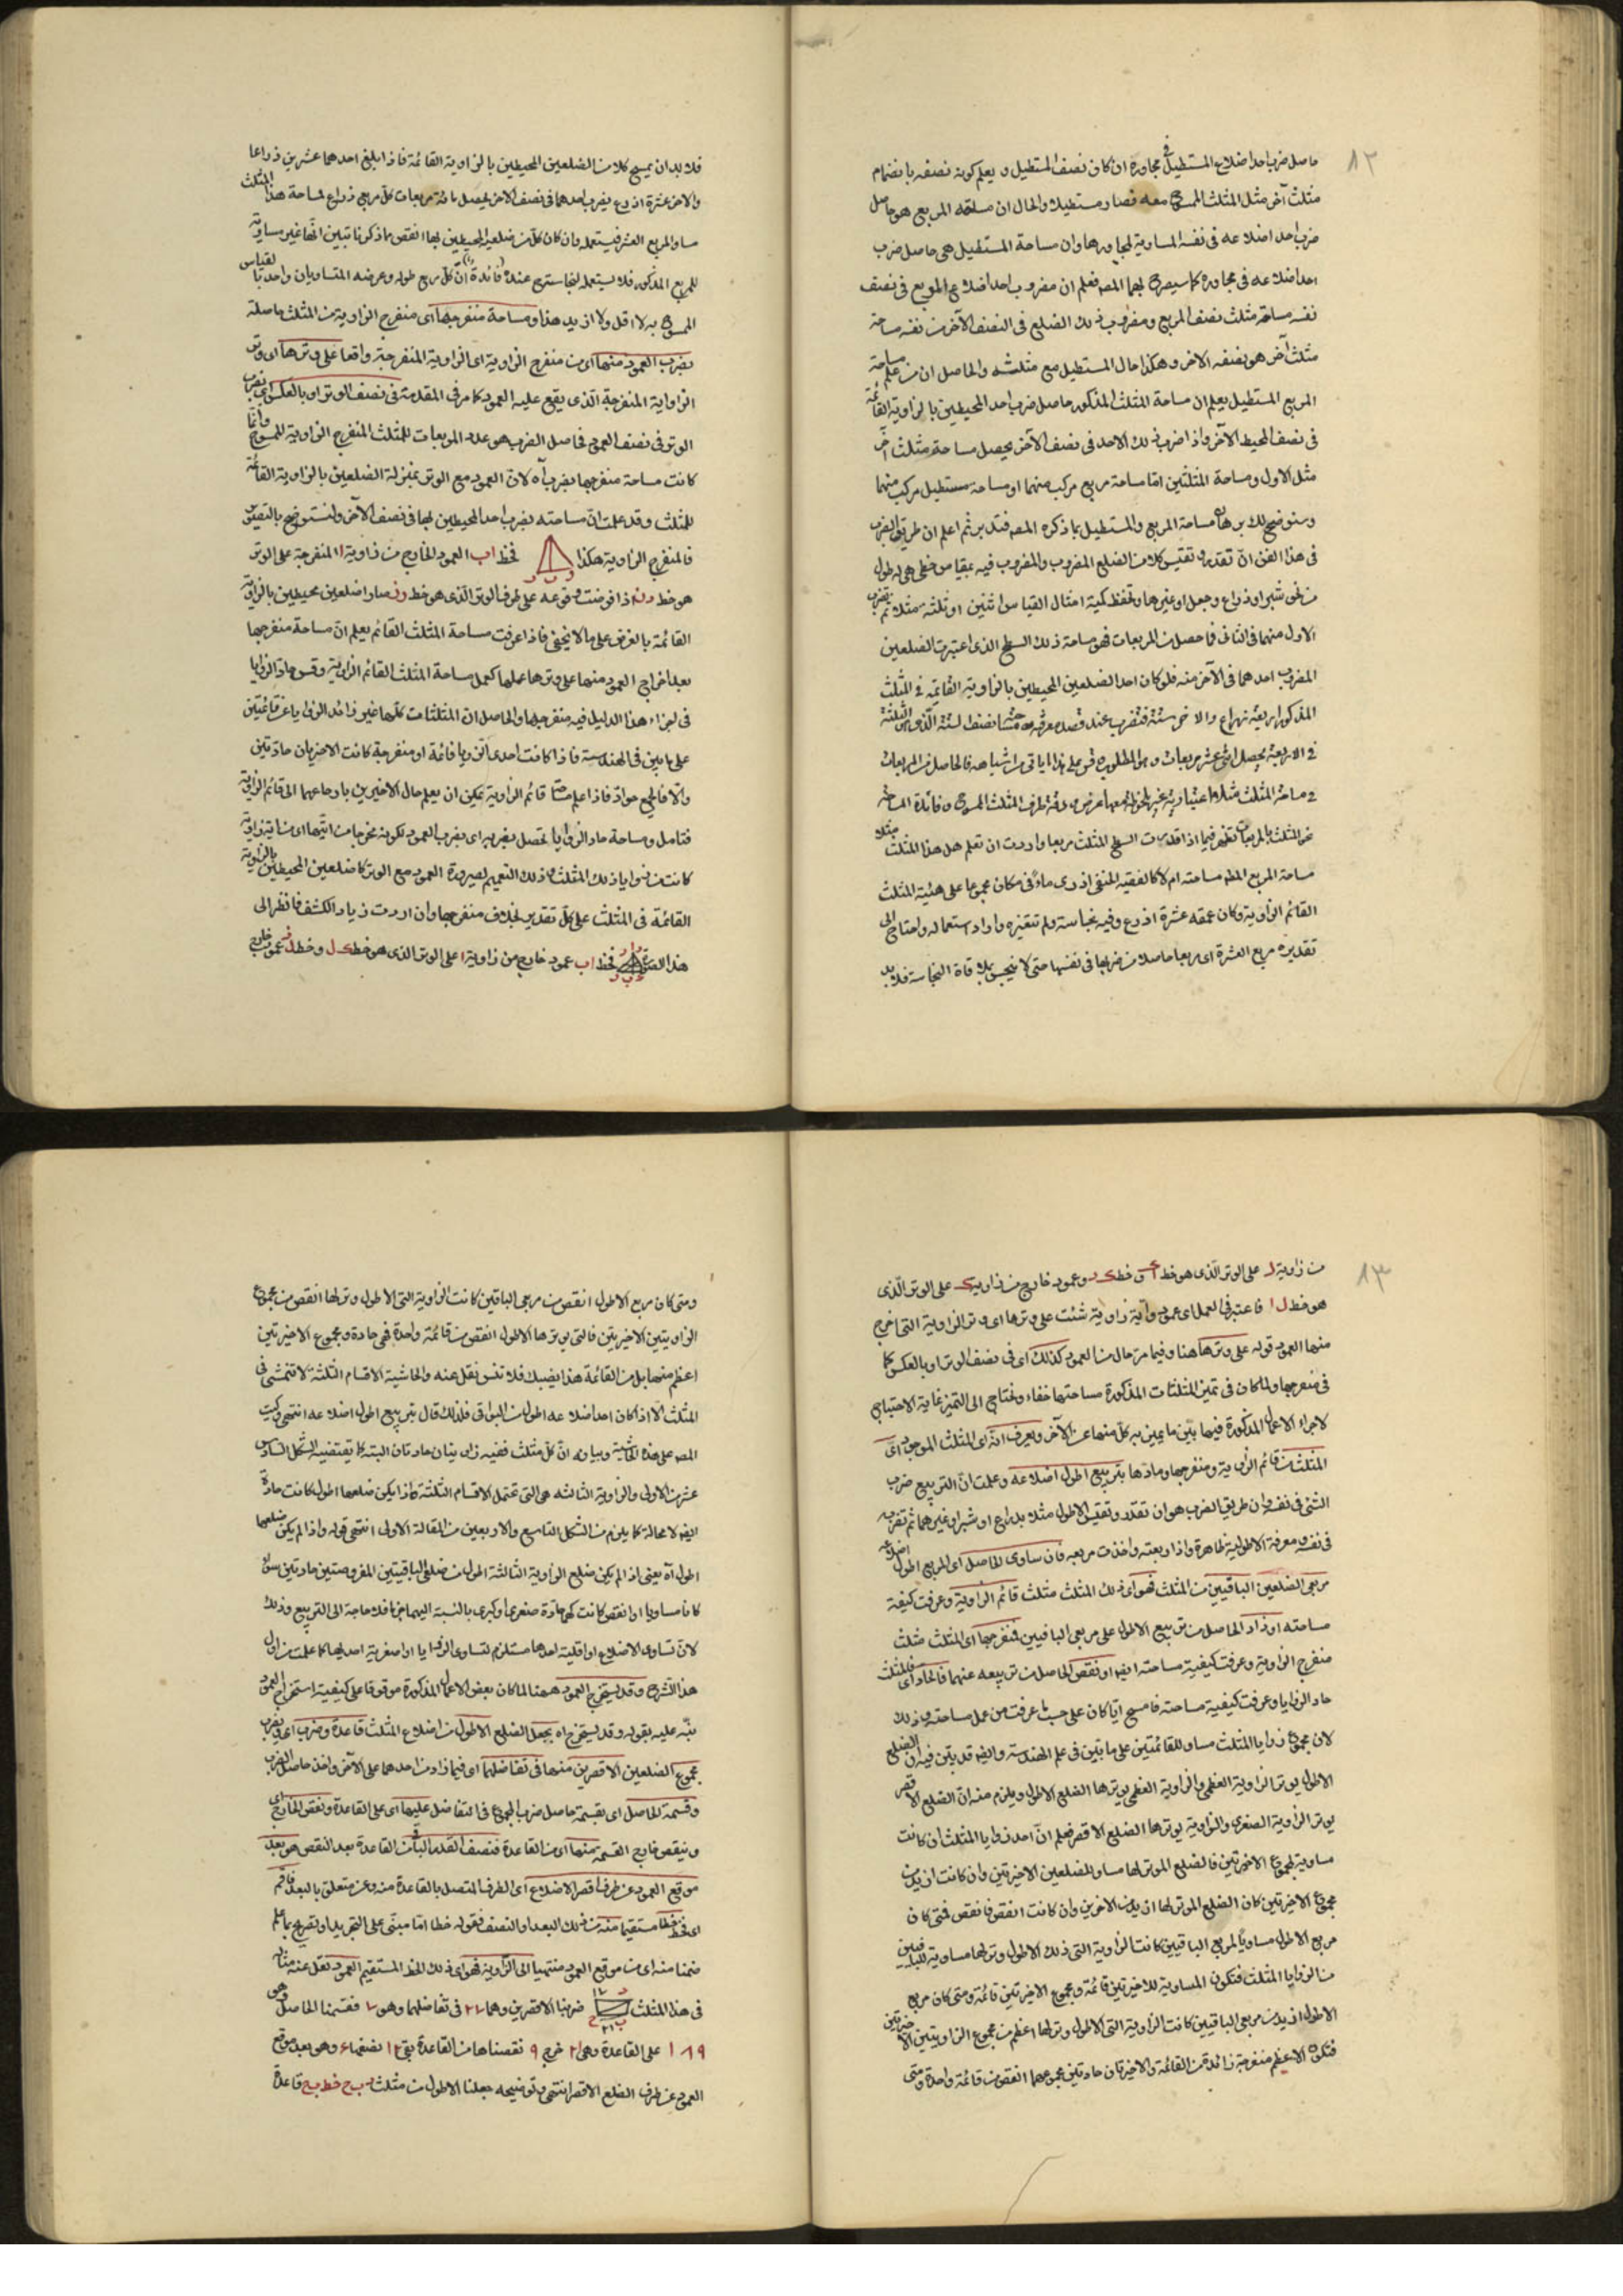 ٨٢
حاصل ضرب احد اضلاع المستطيل في مجاوره ان كان نصف المستطيل و يعلم كونه نصفه بانضمام
مثلث آخر مثل المثلث الممسوح معه فصار مستطيلا والحال ان مساحة المربع هو حاصل
ضرب احد اضلاعه في نفسه المساوية لمجاورها وان مساحة المستطيل هي حاصل ضرب
احد اضلاعه في مجاوره كما سيصرح بهما المصه فعلم ان مضروب احد اضلاع المربع في نصف
نفسه مساحة مثلث نصف المربع ومضروب ذلك الضلع في النصف الآخر من نفسه مساحة
مثلث آخر هو نصفه الاخر وهكذا حال المستطيل مع مثلثيه والحاصل ان من علم مساحة
المربع المستطيل يعلم ان مساحة المثلث المذكور حاصل ضرب احد المحيطين بالزاوية القائمة
في نصف المحيط الآخر واذا ضرب ذلك الاحد في نصف الآخر يحصل مساحة مثلث آخر
مثل الاول ومساحة المثلثين اما مساحة مربع مركب منهما او مساحة مستطيل مركب منهما
وسنوضح لك برهان مساحة المربع والمستطيل بما ذكره المصه فتدبر ثم اعلم ان طريق الضرب
في هذا الفن ان تقدر و تقيس كلا من الضلع المضروب والمضروب فيه بمقياس خطي هو له طول
من نحو شبر او ذراع وجعل او غيرها وتحفظ كمية امثال القياس اثنين او ثلثة مثلا ثم تضرب
الاول منهما في الثاني فما حصل من المربعات فهو مساحة ذلك السطح الذي اعتبرت الضلعين
المضروب احدهما في الآخر منه فلو كان احد الضلعين المحيطين بالزاوية القائمة في المثلث
المذكور اربعة اذرع والاخر ستة فتضرب عند قصد معرفة مساحته نصف الستة الذي هو الثلثة
في الاربعة يحصل اثنى عشر مربعات وهو المطلوب وقس على هذا ما ياتي من اشباهه فالحاصل من المربعات
في مساحة المثلث مثلا اعتبارية غير ملحوظ معها عرض ورقة طرف المثلث الممسوح وفائدة المساحة
نحو المثلث بالمربعات تظهر فيما اذا قدرت السطح المثلث مربعا واردت ان تعلم هل هذا المثلث مثلا
مساحة المربع المطه مساحته ام لا كالفقيه الحنفي اذ رى ماءً في مكان مجموعا على هيئة المثلث
القائم الزاوية وكان عمقه عشرة اذرع وفيه نجاسة ولم تتغيره واراد استعماله واحتاج الى
تقديره مربع العشرة اى مربعا حاصلا من ضربها في نفسها حتى لا ينجس بملاقاة النجاسة فلا بد
فلا بد ان يمسح كلا من الضلعين المحيطين بالزاوية القائمة فاذا بلغ احدهما عشرين ذراعا
والاخر عشرة اذرع يضرب احدهما في نصف الآخر يحصل مائة مربعات كل مربع ذراع لمساحة هذا المثلث
مساو المربع العشر فيستعمله وان كان كل من ضلعيه المحيطين بها انقص مما ذكرنا تبين انها غير مساوية
للمربع المذكور فلا يستعمله لنجاسته ح عنده فائدة ان كل مربع طوله وعرضه المتساويان واحد بالقياس
الممسوح به لا اقل ولا ازيد هذا ومساحة منفرجها اى منفرج الزاوية من المثلث حاصلة
بضرب العمود منها اى من منفرج الزاوية اى الزاوية المنفرجة واقعا على وترها اى وتر
الزاواية المنفرجة الذى يقع عليه العمود كما مر في المقدمة في نصف الوتر او بالعكس اى بضرب
الوتر في نصف العمود فحاصل الضرب هو عدد المربعات للمثلث المنفرج الزاوية للممسوح وانما
كانت مساحة منفرجها بضرب آه لان العمود مع الوتر بمنزلة الضلعين بالزاوية القائمة
للمثلث وقد علمت ان مساحته بضرب احد المحيطين بها في نصف الآخر ولنستوضح بالتصوير
فالمنفرج الزاوية هكذا فخط اب العمود الخارج من زاوية ا المنفرجة على الوتر
هو خط د ر اذا فرضت وقوعه على طرف الوتر الذى هو خط در صارا ضلعين محيطين بالزاوية
القائمة بالفرض على ما لا يخفى فاذا عرفت مساحة المثلث القائم يعلم ان مساحة منفرجها
بعد اخراج العمود منها على وترها عملها كعمل مساحة المثلث القائم الزاوية وقس حاد الزوايا
في اجزاء هذا الدليل فيه منفرجها والحاصل ان المثلثات كلها غير زائد الزوايا عن قائمتين
على ما بين في الهندسة فاذا كانت احدى الزوايا قائمة او منفرجة كانت الاخريان حادتين
والا فالجميع حواد فاذا علم مساحة قائم الزاوية يمكن ان يعلم حال الاخيرين بارجاعهما الى قائم الزاوية
فتامل ومساحة حاد الزوايا تحصل بضربه اى بضرب العمود بكونه مخرجا من ايتهما اى من اية زاوية
كانت من زوايا ذلك المثلث وذلك التعميم لصيرورة العمود مع الوتر كالضلعين المحيطين بالزاوية
القائمة في المثلث على كل تقدير بخلاف منفرجها وان اردت زيادة الكشف فانظر الى
هذا الصورة فخط اب عمود خارج من زاوية ا على الوتر الذى هو خط ك ل وخط ل عمود خارج
٨٣
من زاوية ل على الوتر الذى هو خط ا ك وخط ك ر وعمود خارج من زاوية ك على الوتر الذى
هو خط ل ا فاعتبر في العمل اى عمود واية زاوية شئت على وترها اى وتر الزاوية التى اخرج
منها العمود قوله على وترها هنا وفيما مر حال من العمود كذلك اى في نصف الوتر او بالعكس كما
في منفرجها ولما كان في تمييز المثلثات المذكورة مساحتها خفاء ونحتاج الى التميز غاية الاحتياج
لاجراء الاعمال المذكورة فيما بين ما يميز به كل منها عن الآخر ويعرف انه اى المثلث الموجود اى
المثلث من قائم الزاوية ومنفرجها وحادها بتربيع اطول اضلاعه وعلمت ان التربيع ضرب
الشئ في نفسه وان طريق الضرب هو ان تقدر وتقيس الاطول مثلا بذراع او شبر او غيرهما ثم تضربه
في نفسه ومعرفة الاطولية ظاهرة واذا ربعته واخذت مربعه فان ساوى الحاصل اى المربع اطول اضلاعه
مربعى الضلعين الباقيين من المثلث فهو اى ذلك المثلث مثلث قائم الزاوية وعرفت كيفية
مساحته او زاد الحاصل من تربيع الاطول على مربعى الباقيين فمنفرجها اى المثلث مثلث
منفرج الزاوية وعرفت كيفية مساحته ايضا او نقص الحاصل من تربيعه عنهما فالحاد اى فالمثلث
حاد الزوايا وعرفت كيفية مساحته فامسح ايا كان على حسب ما عرفت من عمل مساحته وذلك
لان مجموع زوايا المثلث مساو للقائمتين على ما بين في علم الهندسة وايضا قد بين فيه ان الضلع
الاطول يوتر الزاوية العظمى والزاوية العظمى يوترها الضلع الاطول ويلزم منه ان الضلع الاقصر
يوتر الزاوية الصغرى والزاوية يوترها الضلع الاقصر فعلم ان احد زوايا المثلث ان كانت
مساوية لمجموع الاخيرتين فالضلع الموتر لها مساو للضلعين الاخيرتين وان كانت ازيد من
مجموع الاخيرتين كان الضلع الموتر لها ازيد من الاخرين وان كانت انقص فانقص فمتى كان
مربع الاطول مساويا لمربع الباقيين كانت الزاوية التى ذلك الاطول وترلها مساوية للباقيين
من الزوايا المثلث فتكون المساوية للاخيرتين قائمة ومجموع الاخيرتين قائمة ومتى كان مربع
الاطول ازيد من مربعى الباقيين كانت الزاوية التى الاطول وترلها اعظم من مجموع الزاويتين الاخيرتين
فتكون الاعظم منفرجة زائدة من القائمة والاخيرتان حادتين مجموعهما انقص من قائمة واحدة ومتى
ومتى كان مربع الاطول انقص من مربعى الباقيين كانت الزاوية التى الاطول وترلها انقص من مجموع
الزاويتين الاخيرتين فالتى يوترها الاطول انقص من قائمة واحدة فهى حادة ومجموع الاخيرتين
اعظم منها بل من القائمة هذا يضبك فلا تنس نقل عنه والحاشية الاقسام الثلثة لا تتمشى في
المثلث الا اذا كان احد اضلاعه اطول من البواقي فلذلك قال بتربيع اطول اضلاعه انتهى وكتب
المصه على هذه الحاشية وبيانه ان كل مثلث ففيه زاويتان حادتان البتة كما يقتضيه الشكل السادس
عشر من الاولى والزاوية الثالثه هى التى تحتمل الاقسام الثلثة فاذا يكن ضلعها اطول كانت حادة
ايضا لا محالة كما يلزم من الشكل التاسع والاربعين من المقالة الاولى انتهى قوله واذا لم يكن ضلعها
اطول آه يعنى اذا لم يكن ضلع الزاوية الثالثة اطول من ضلعى الباقيتين المفروضتين حادتين سواء
كانا مساويا او انقص كانت كهى حادة صغرى او كبرى بالنسبة اليهما جزما فلا حاجة الى التربيع وذلك
لان تساوى الاضلاع او اقلية احدها مستلزم لتساوى الزوايا او اصغرية احديها كما علمت من اول
هذا الشرح وقد يستخرج العمود ههنا لما كان بعض الاعمال المذكورة موقوفا على كيفية استخراج العمود
نبه عليه بقوله وقد يستخرج اه بجعل الضلع الاطول من اضلاع المثلث قاعدة وضرب اى بضرب
مجموع الضلعين الاقصرين منها في تفاضلهما اى فيما زاد من احدهما على الآخر واخذ حاصل الضرب
وقسمة الحاصل اى بقسمة حاصل ضرب المجموع في التفاضل عليها اى على القاعدة ونقص الخارج اى
وينقص خارج القسمة منها اى من القاعدة فنصف القدر الباقى من القاعدة بعد النقص هو بعد
موقع العمود عن طرف اقصر الاضلاع اى الطرف المتصل بالقاعدة منه وعن متعلق بالبعد فاقم
اى فخط خطا مستقيما منه من ذلك البعد او النصف فقوله خطا اما مبنى على التجريد او تصريح بما علم
ضمنا منه اى من موقع العمود منتهيا الى الزاوية فهو اى ذلك الخط المستقيم العمود نقل عنه مثاله
في هذا المثلث ضربنا الاقصرين وهما ٢٧ في تفاضلهما وهو ٧ فقسمنا الحاصل وهو
١٨٩ على القاعدة وهى ٢١ خرج ٩ نقصناها من القاعدة بقى ١٢ نصفها ٦ وهو بعد موقع
العمود عن طرف الضلع الاقصر انتهى وتوضيحه جعلنا الاطول من مثلث ب ح خط ب ح قاعدة